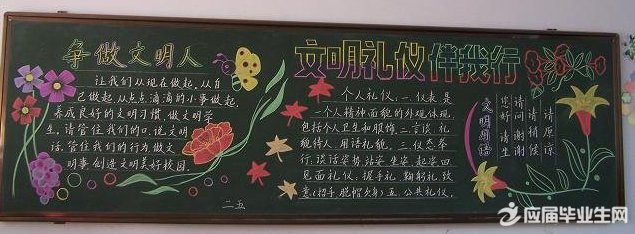 争做文明人
让我们从现在做起，从自
己做起，从点点滴滴的小事做起，
养成良好的文明习惯，做文明学
生，请管住我们的口，说文明
话，管住我们的行为做文
明事，创造文明美好校园。
二五
文明礼仪伴我行
个人礼仪：一、仪表是
一个人精神面貌的外观体现，
包括个人卫生和服饰，二、言谈，礼
貌待人，用语礼貌。三、仪态举
行，谈话姿势，站姿，坐姿，起姿四
见面礼仪：握手礼，鞠躬礼，致
意（招手，脱帽，欠身）五、公共礼仪。
文明用语
请原谅
请稍候
请问谢谢
您好请坐
应届毕业生网